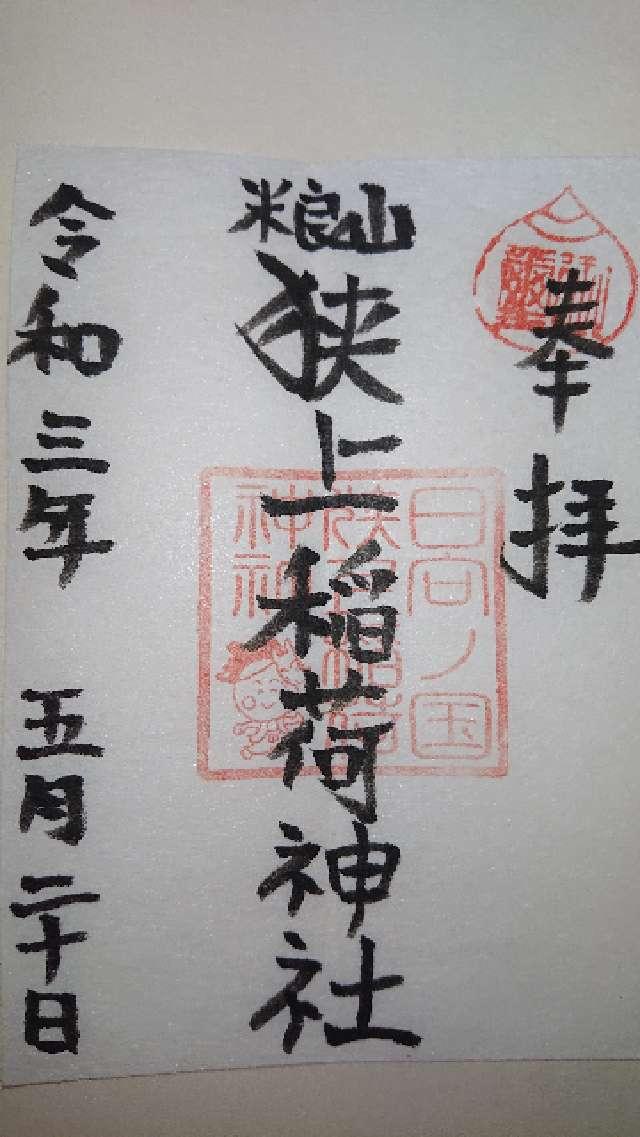 奉拝
米良山
狭上稲荷神社
日向ノ国
狭上稲荷
神社
令和三年 五月二十日